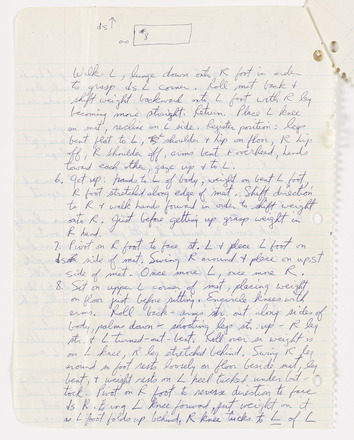 ds
8
Walk L, lunge down onto R foot in order
to grasp ds L corner. Roll mat back &
shift weight backward onto L foot with R leg
becoming more straight. Return. Place L knee
on mat, receive on L side. Register position: legs
bent flat to L, shoulder & hip on floor, R hip
off, R shoulder off, arms bent & overhead, hands
toward each other, gaze up & to L.
6. Get up: hands to L of body, weight on bent L foot,
R foot stretched along edge of mat. Shift direction
to R & walk hands forward in order to shift weight
onto R. Just before getting up grasp weight in
R hand.
7. Pivot on R foot to face st. L & place L foot on
ds side of mat. Swing R around & place on upst
side of mat. Once more L, once more R.
8. Sit on upper L corner of mat, placing weight
on floor just before sitting. Encircle knees with
arms. Roll back - arms str. out along sides of
body, palms down - shooting legs st. up - R leg
st. & L turned-out-bent. Roll over so weight is
on L knee, R leg stretched behind. Swing R leg
around so foot rests loosely on floor beside mat, leg
bent, & weight rests on L heel tucked under but-
tock. Pivot on R foot to reverse direction to face
ds R. Bring L knee forward, put weight on it
as L foot folds up behind, R knee tucks to of L